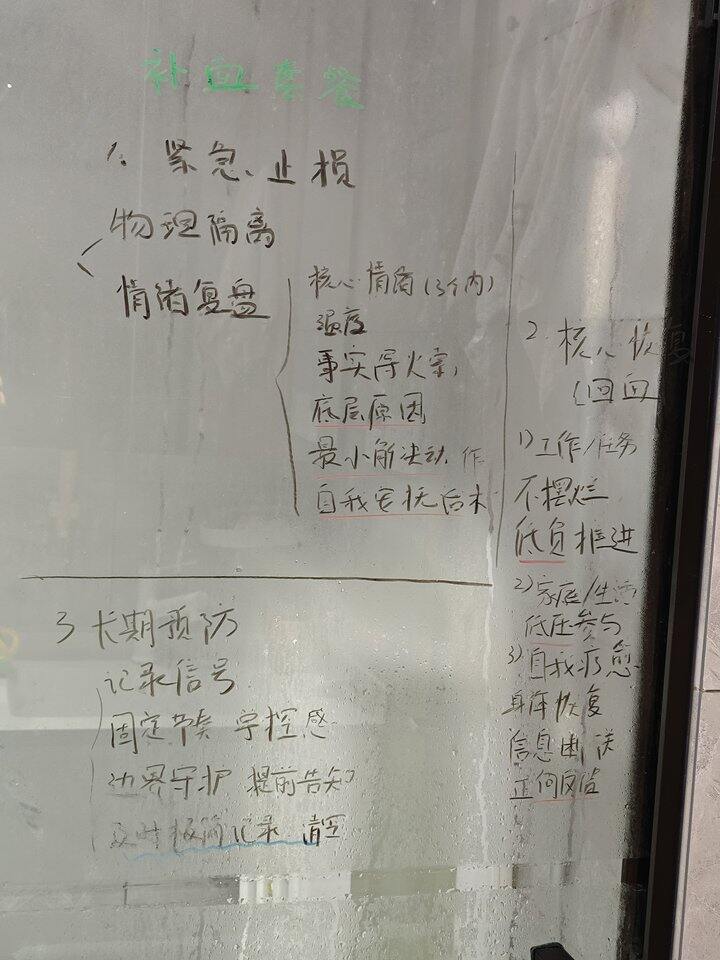 补血套餐
1. 紧急、止损
物理隔离
情绪复盘
核心情绪(3个内)
温度
事实导火索,
底层原因
最小解决动作
自我安抚话术
2. 核心恢复
(回血
1) 工作/任务
不摆烂
低负推进
2) 家庭/生活
低压参与
3) 自我疗愈
身体恢复
信息断
正向反馈
3 长期预防
记录信号
固定节奏 掌控感
边界守护 提前告知
及时极简记录 清空